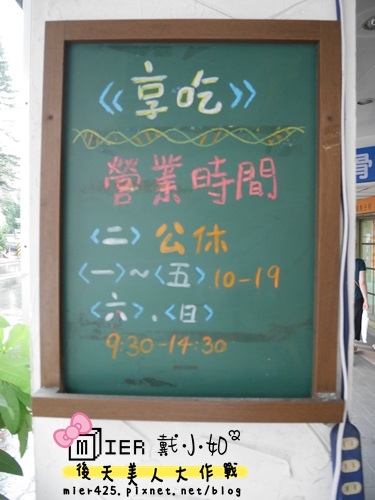 《享吃》
營業時間
<二> 公休
<一>~<五> 10-19
<六>、<日>
9:30-14:30
骨
MIER 戴小如
後天美人大作戰
mier425.pixnet.net/blog